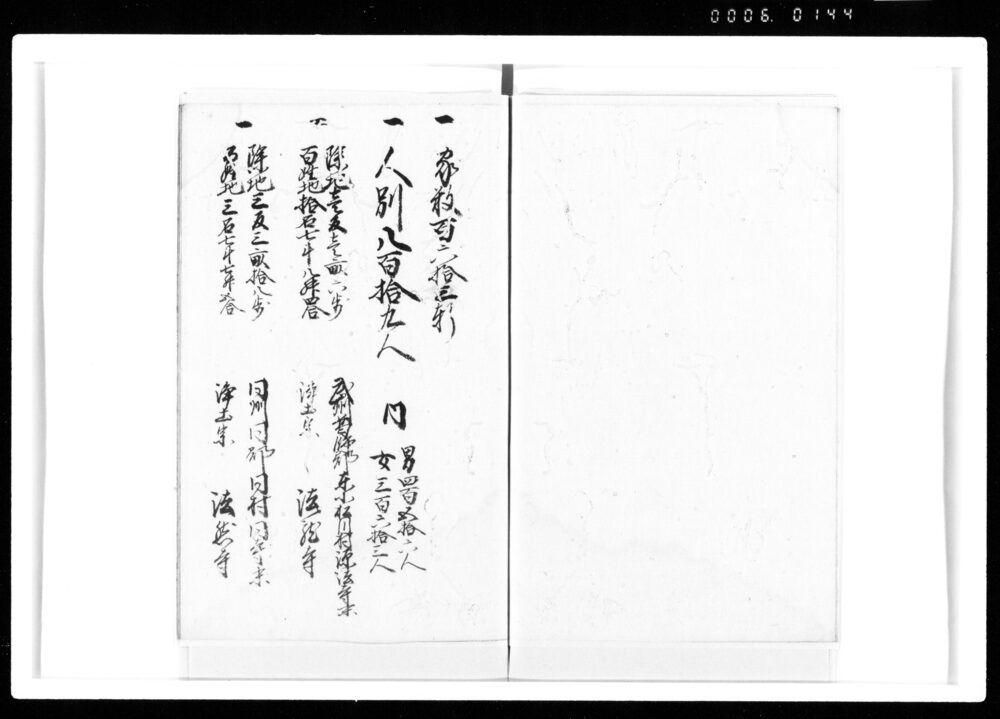 0006. 0144
一 家数百六拾三軒
一 人別八百拾九人 内
男四百五拾六人
女三百六拾三人
一 除地壱反壱畝六歩
百姓地拾石七斗八升四合
武州 郡東小 村源法寺末
浄土宗 法 寺
一 除地三反三畝拾八歩
百姓地三石七斗七升五合
同州同郡同村同寺末
浄土宗 法然寺